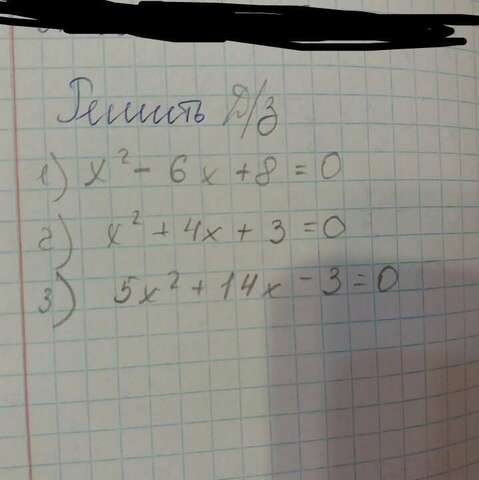 Решить Д/З
1) x² - 6x + 8 = 0
2) x² + 4x + 3 = 0
3) 5x² + 14x - 3 = 0